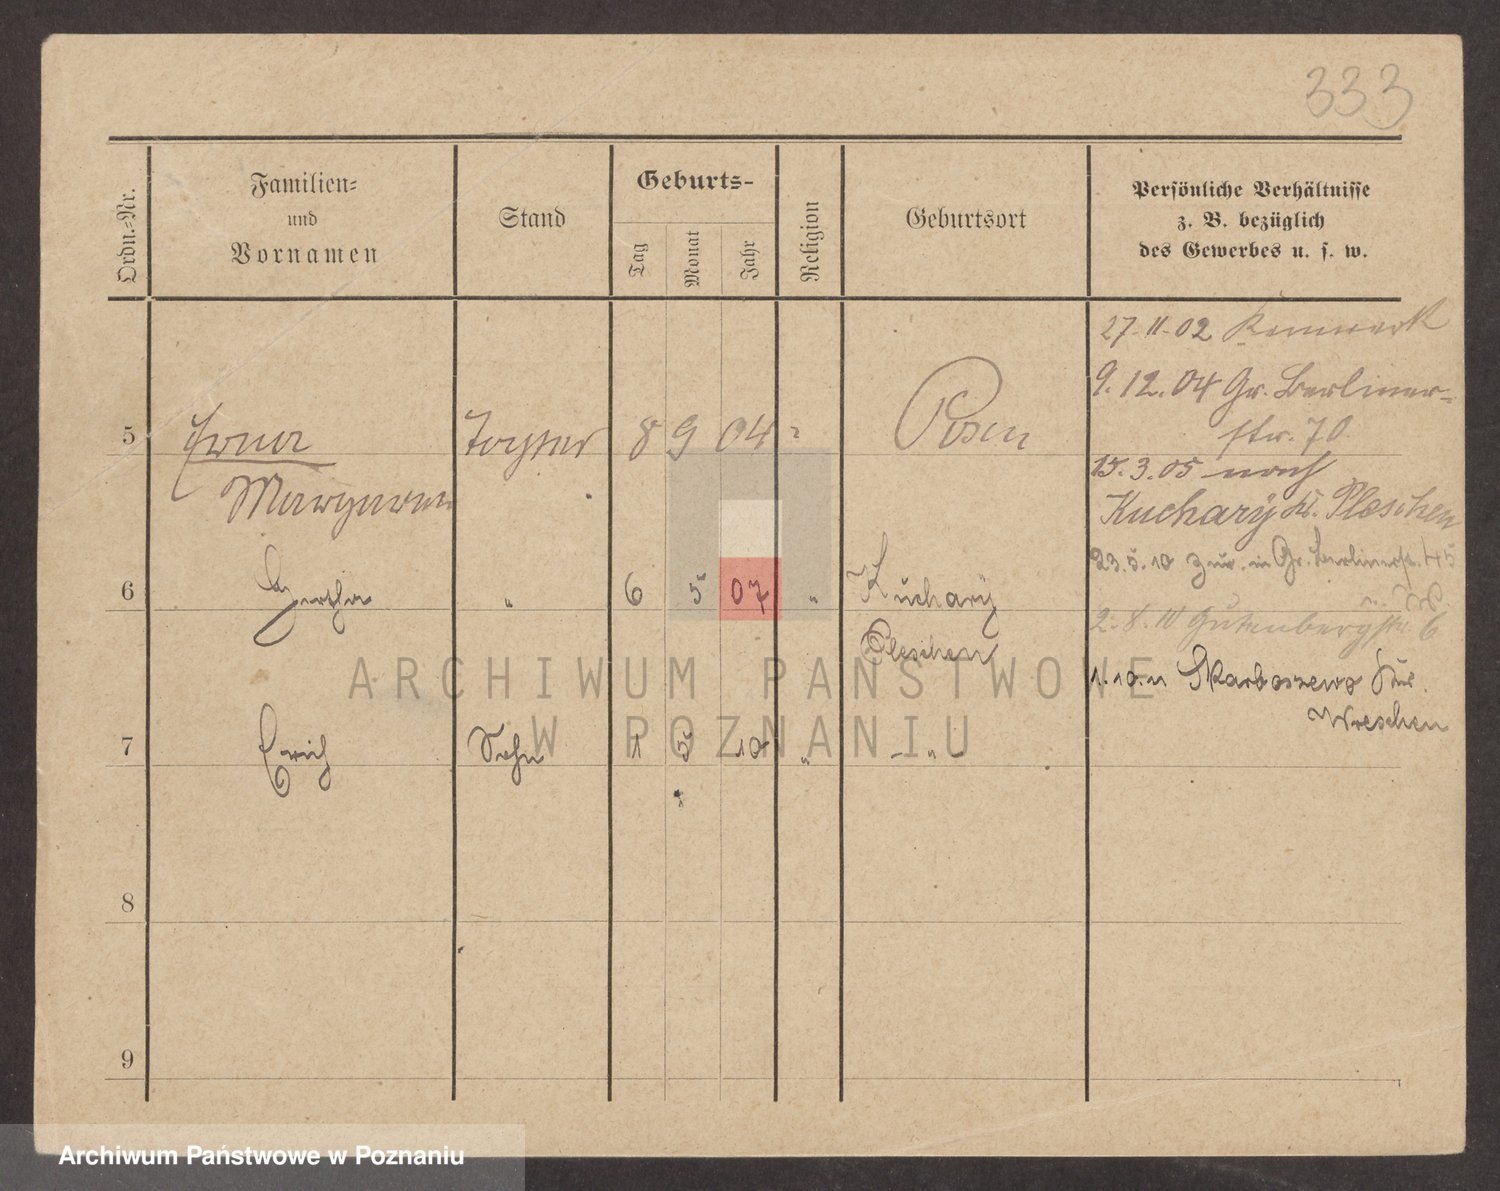 333
Ordn.-Nr.
Familien-
und
Vornamen
Stand
Geburts-
Tag
Monat
Jahr
Religion
Geburtsort
Persönliche Verhältnisse
z. B. bezüglich
des Gewerbes u. s. w.
27.11.02
9.12.04 Gr. Berliner-
str. 70.
5 Erna Tochter 8 9 04 " Posen
15.3.05 nach
Kuchary Kr. Pleschen
23.5.10 zur. in Gr. Berlinerstr.
6 Hertha " 6 5 07 " Kuchary
Pleschen
2.8.10 Gutenbergstr. 6
1.10.11 Skarboszewo Kr.
Wreschen
7 Erich Sohn 1 5 10 " - " -
8
9
ARCHIWUM PAŃSTWOWE
W POZNANIU
Archiwum Państwowe w Poznaniu